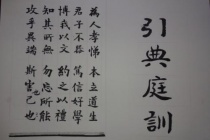 引典庭訓
為人孝悌 本立道生
君子不器 篤信好學
博我以文 約之以禮
知其所無 勿忘所能
攻乎異端 斯害也已